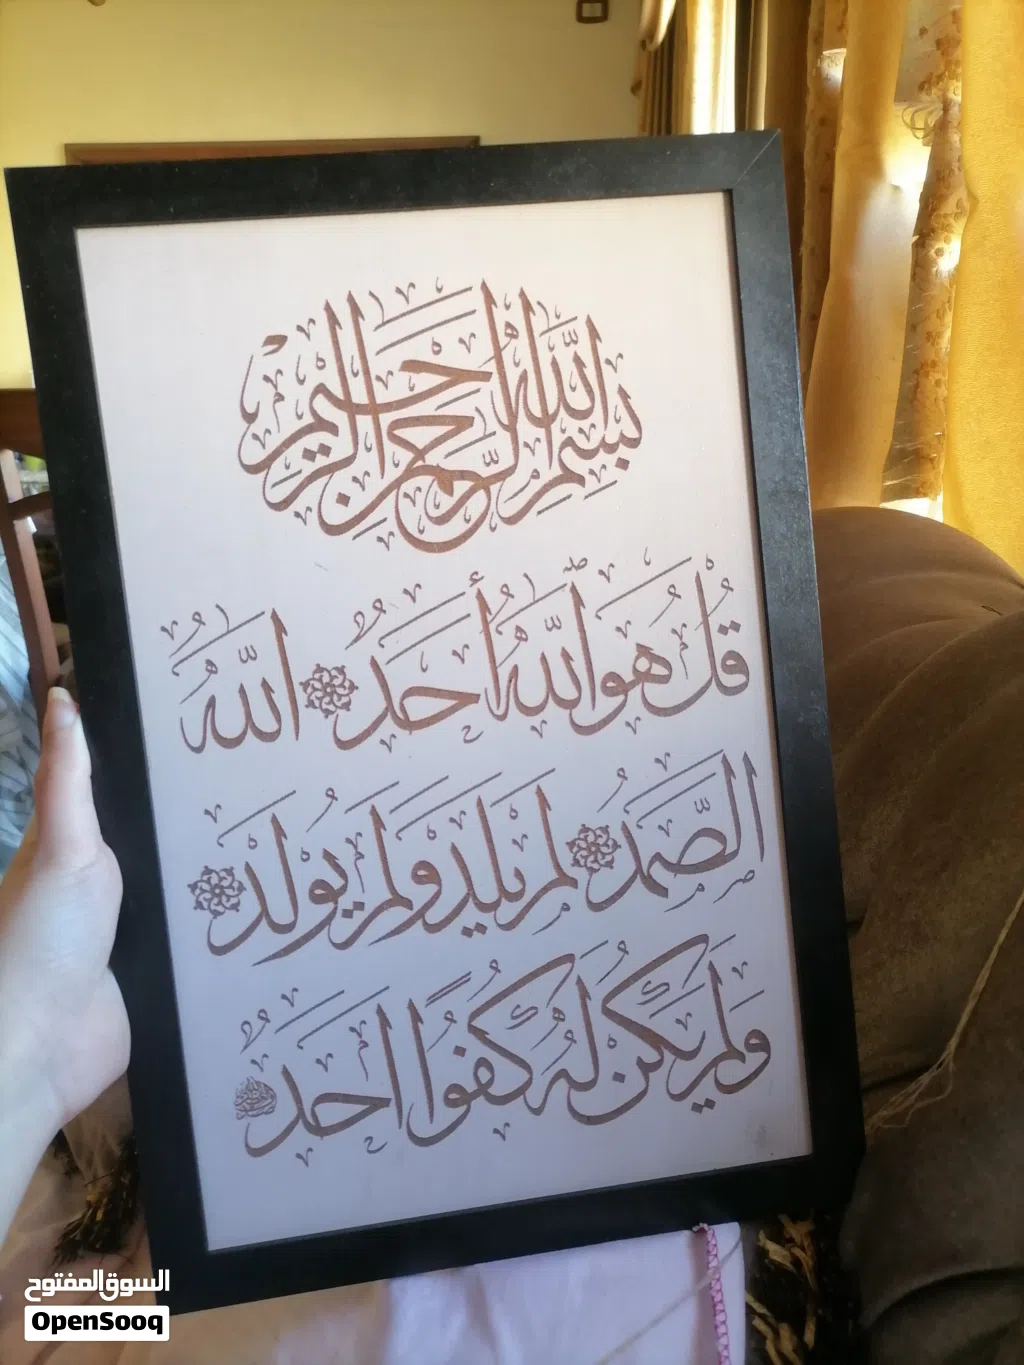 بِسْمِ اللَّهِ الرَّحْمَنِ الرَّحِيمِ
قُلْ هُوَ اللَّهُ أَحَدٌ اللَّهُ
الصَّمَدُ لَمْ يَلِدْ وَلَمْ يُولَدْ
وَلَمْ يَكُنْ لَهُ كُفُوًا أَحَدٌ
السوق المفتوح
OpenSooq